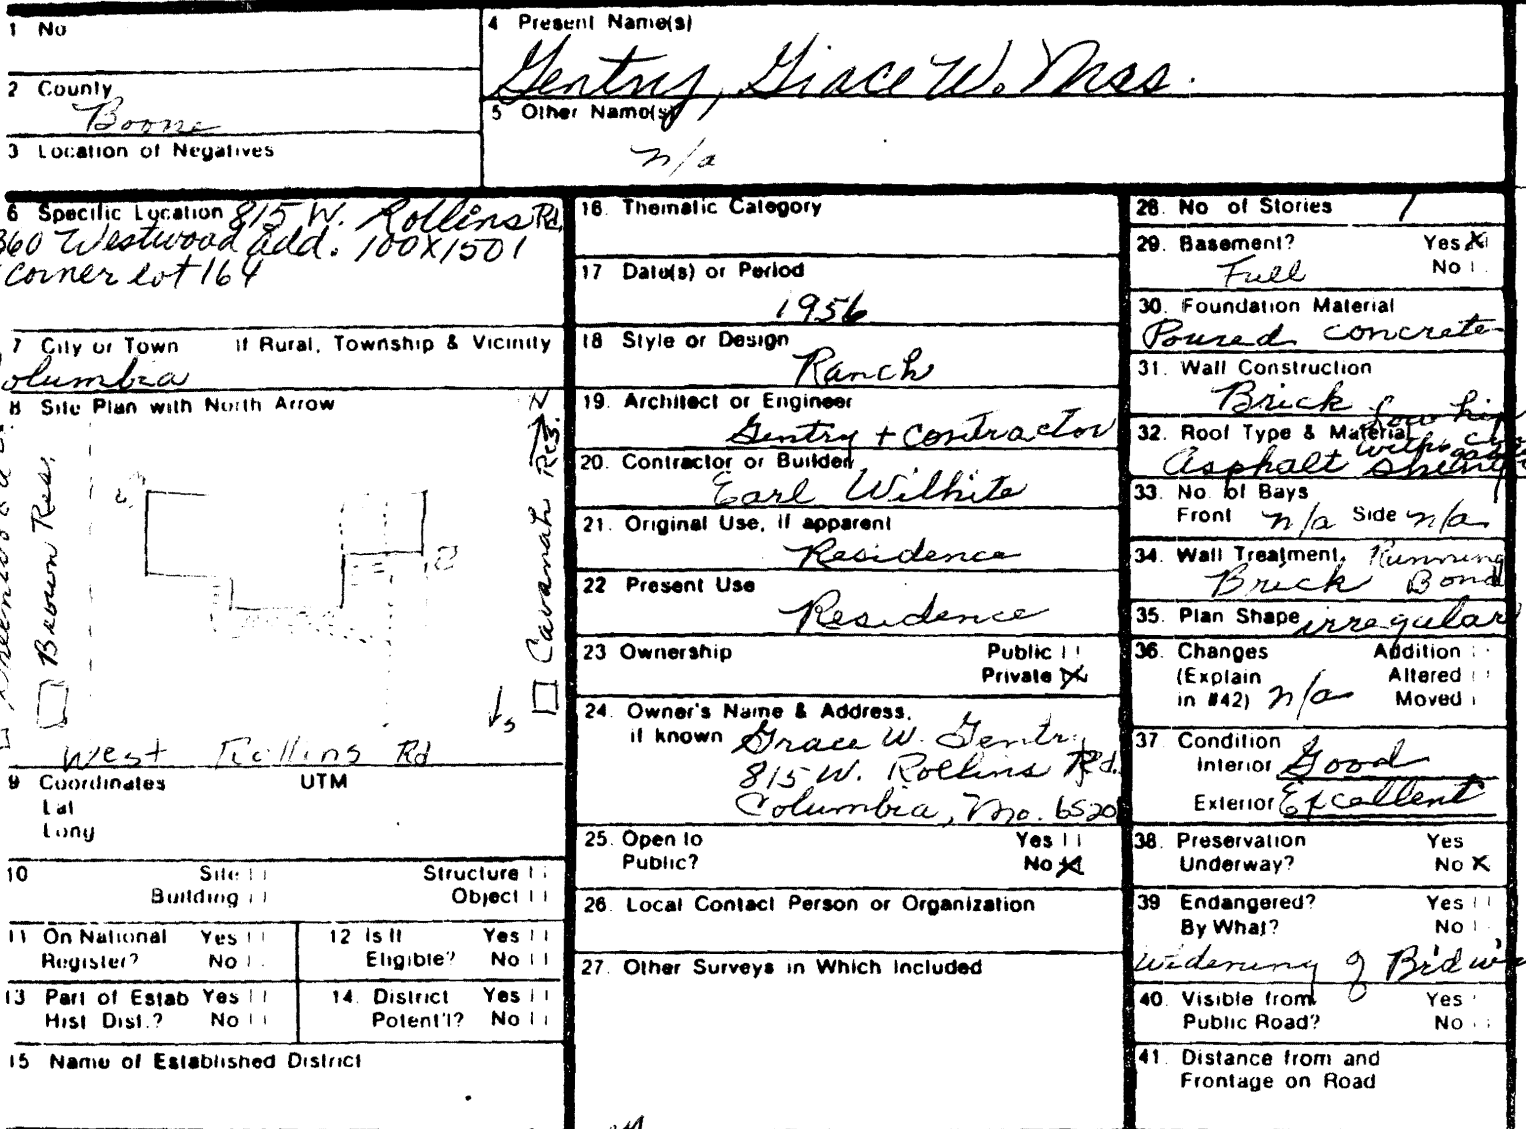 1 No
4 Present Name(s)
Gentry, Grace W. Mrs.
2 County
Boone
5 Other Name(s)
n/a
3 Location of Negatives
6 Specific Location 815 W. Rollins Rd.
360 Westwood Add. 100X150'
corner lot 164
7 City or Town If Rural, Township & Vicinity
olumbia
8 Site Plan with North Arrow
N
Brown Res.
Cavanah Res.
S
West Rollins Rd
9 Coordinates UTM
Lat
Long
10 Site Structure
Building Object
11 On National Register? Yes No
12 Is It Eligible? Yes No
13 Part of Estab Hist Dist.? Yes No
14. District Potent'l? Yes No
15 Name of Established District
16. Thematic Category
17 Date(s) or Period
1956
18 Style or Design
Ranch
19. Architect or Engineer
Gentry + contractor
20. Contractor or Builder
Earl Wilhite
21. Original Use, if apparent
Residence
22 Present Use
Residence
23 Ownership Public
Private X
24. Owner's Name & Address,
if known Grace W. Gentry
815 W. Rollins Rd.
Columbia, Mo. 6520
25. Open to Yes
Public? No X
26. Local Contact Person or Organization
27. Other Surveys in Which Included
28. No of Stories 1
29. Basement? Yes X
Full No
30. Foundation Material
Poured concrete
31. Wall Construction
Brick
32. Roof Type & Material Low hip
with
Asphalt
33. No. of Bays
Front n/a Side n/a
34. Wall Treatment, Running
Brick Bond
35. Plan Shape irregular
36. Changes Addition
(Explain Altered
in #42) n/a Moved
37. Condition
Interior Good
Exterior Excellent
38. Preservation Yes
Underway? No X
39 Endangered? Yes
By What? No
Widening of
40. Visible from Yes
Public Road? No
41. Distance from and
Frontage on Road